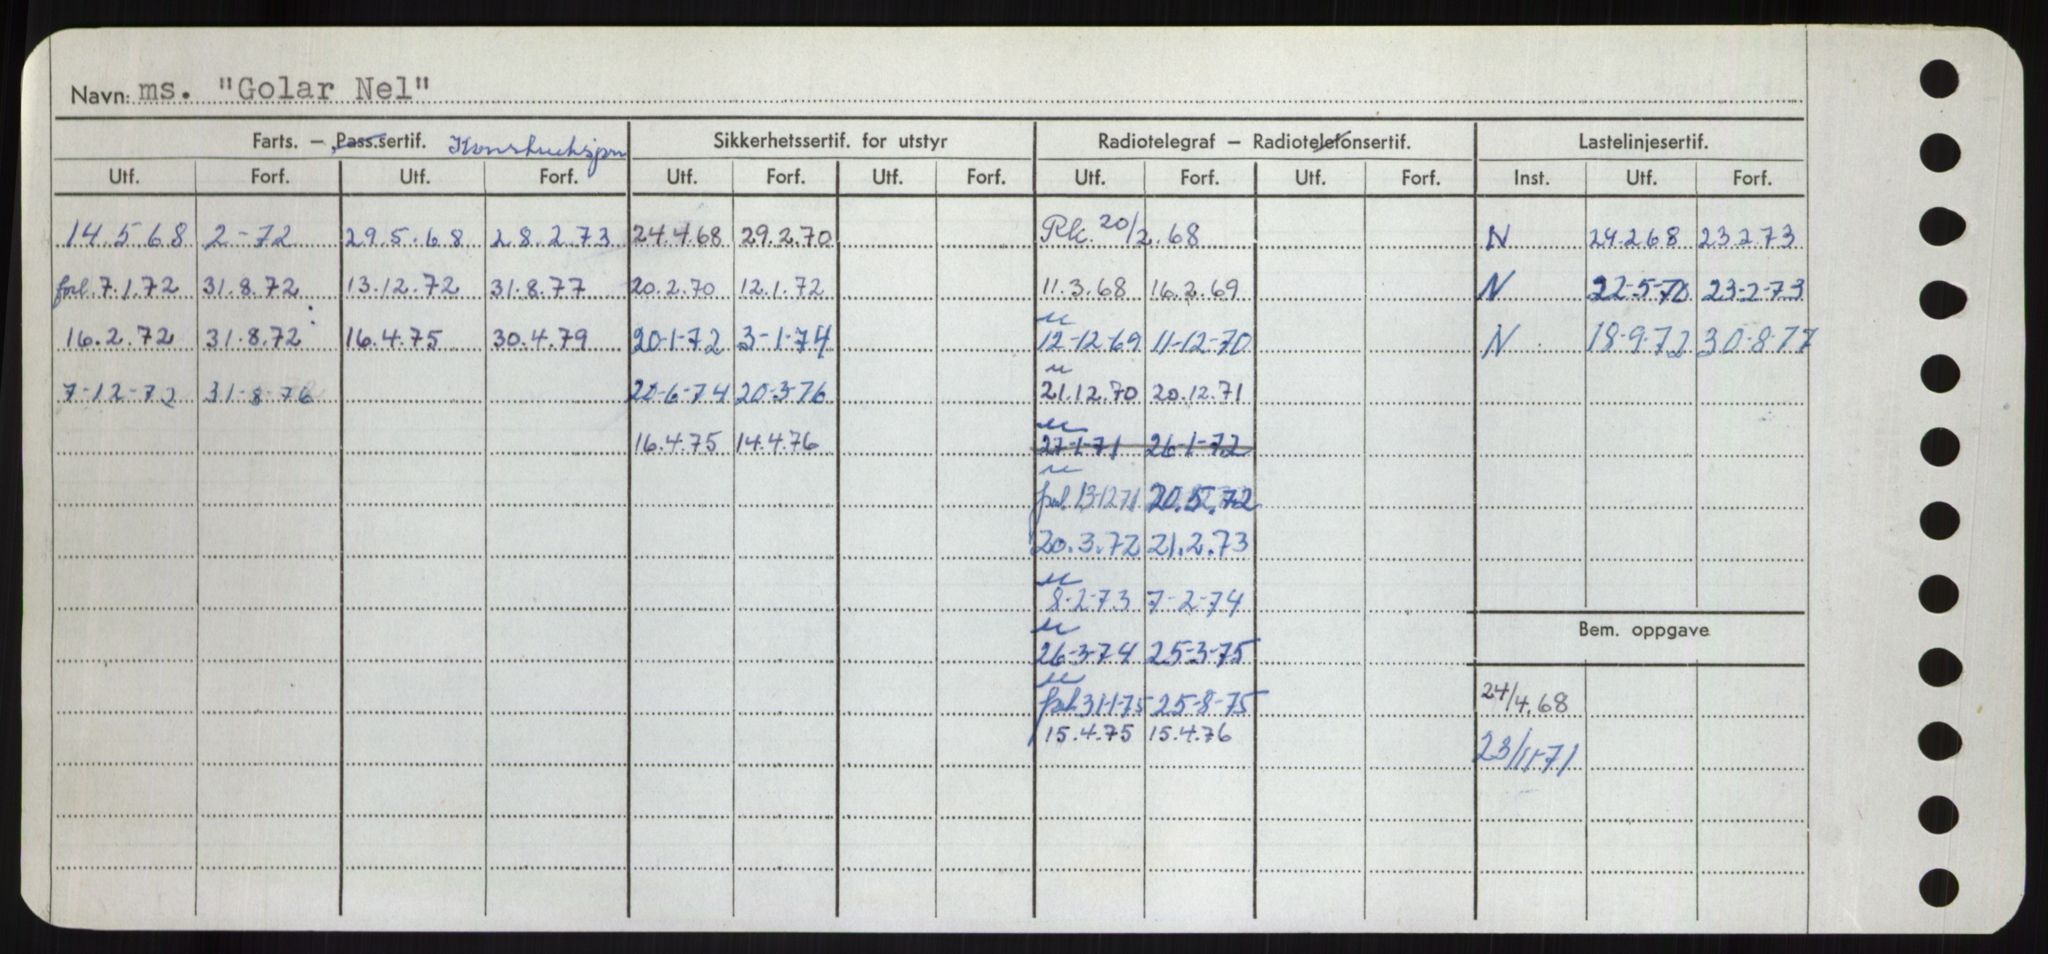 Navn: ms. "Golar Nel"
Farts. – Pass.sertif. Sikkerhetssertif. for utstyr Radiotelegraf – Radiotelefonsertif. Lastelinjesertif.
Utf. Forf. Utf. Forf. Utf. Forf. Utf. Forf. Utf. Forf. Utf. Forf. Inst. Utf. Forf.
14.5 68 2-72 29.5.68 28.2.73 24.4.68 29.2.70 Rk. 20/2.68 N 24.2.68 23.2.73
forl. 7.1.72 31.8.72 13.12.72 31.8.77 20.2.70 12.1.72 11.3.68 16.2.69 N 22-5-70 23-2-73
16.2.72 31.8.72 16.4.75 30.4.79 20-1-72 3-1-74 12-12-69 11-12-70 N 18-9-72 30-8-77
7-12-72 31-8-76 20-6-74 20-3-76 21.12.70 20.12.71
16.4.75 14.4.76 27-1-71 26-1-72
forl. 13-12-71 20.5.72
20.3.72 21.2.73
8-2-73 7-2-74
Bem. oppgave
26-3-74 25-3-75
forl. 31-1-75 25-8-75 24/4.68
15.4.75 15.4.76
23/11-71